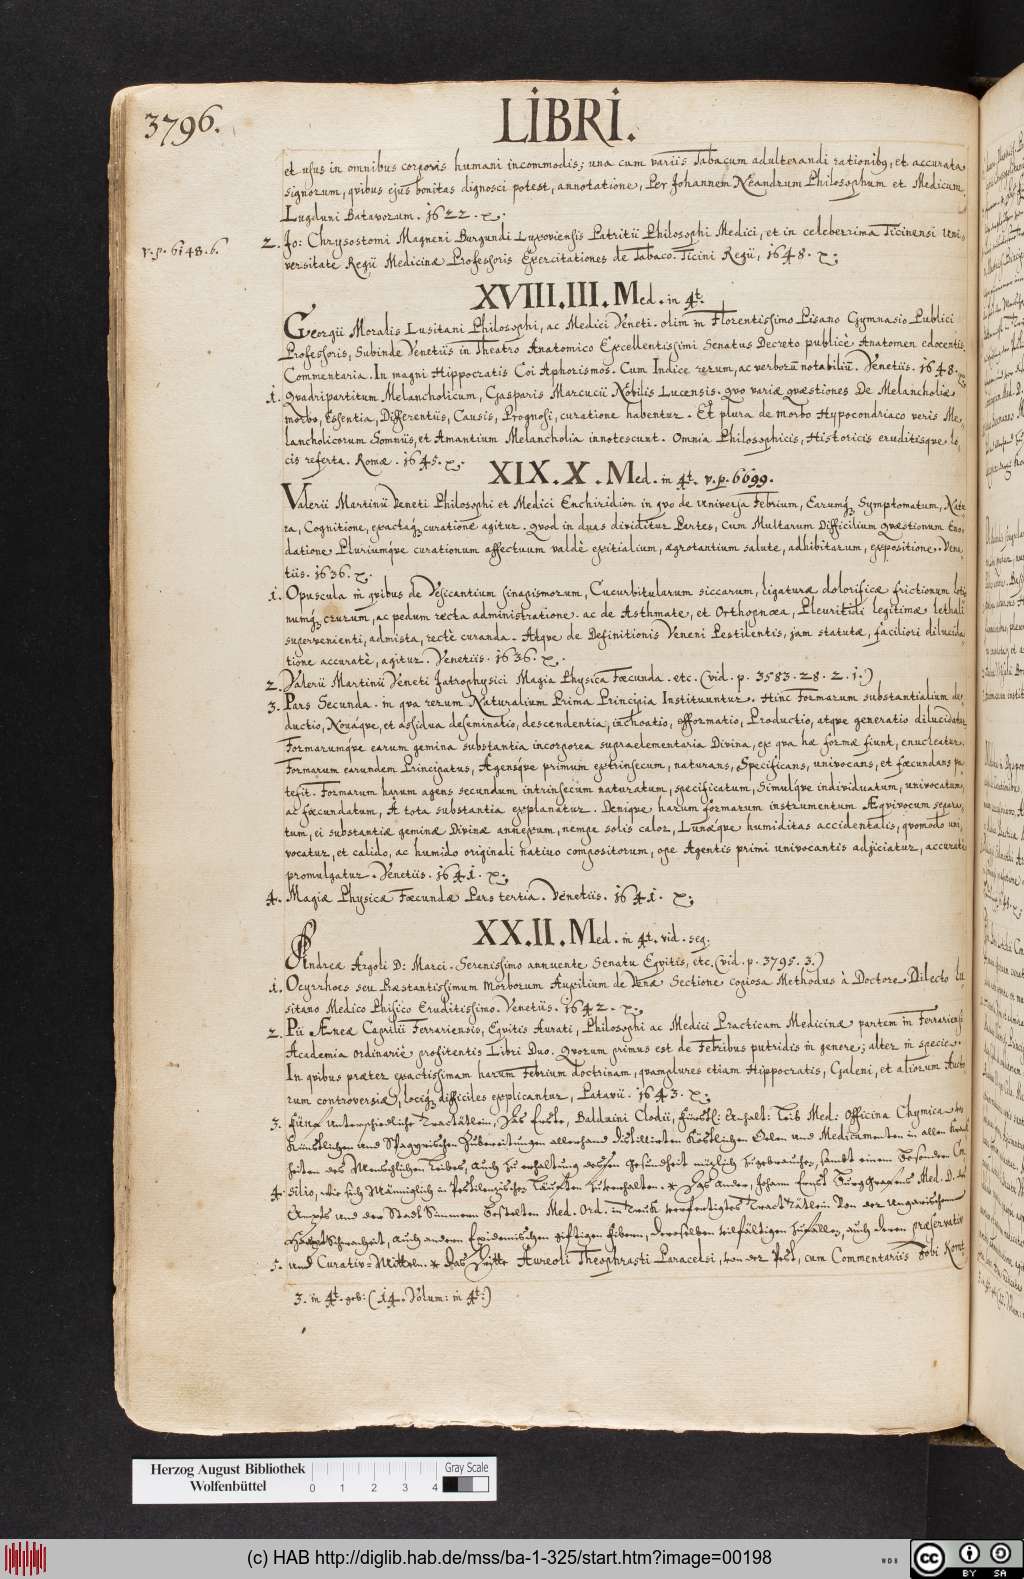 3796.
LIBRI.
et usus in omnibus corporis humani incommodis; una cum variis Tabacum adulterandi rationibq, et accurata
signorum, quibus ejus bonitas dignosci potest, annotatione, Per Johannem Neandrum Philosophum et Medicum.
Lugduni Batavorum. 1622.
v. p. 6148. 6.
2. Jo: Chrysostomi Magneni Burgundi Luxoviensis Patritii Philosophi Medici, et in celeberrima Ticinensi Uni-
versitate Regii Medicinæ Professoris Exercitationes de Tabaco. Ticini Regii, 1648.
XVIII.III. Med. in 4t.
Georgii Moralis Lusitani Philosophi, ac Medici Veneti. olim in Florentissimo Pisano Gymnasio Publici
Professoris, Subinde Venetiis in Theatro Anatomico Excellentissimi Senatus Decreto publicè Anatomen edocentis
Commentaria. In magni Hippocratis Coi Aphorismos. Cum Indice rerum, ac verborū notabiliū. Venetiis. 1648.
1. Quadripartitum Melancholicum, Gasparis Marcucii Nobilis Lucensis. quo variæ quæstiones De Melancholiæ
morbo, Essentia, Differentiis, Causis, Prognosi, curatione habentur. Et plura de morbo Hypocondriaco veris Me-
lancholicorum Somniis, et Amantium Melancholia innotescunt. Omnia Philosophicis, Historicis eruditisque lo-
cis referta. Romæ. 1645.
XIX.X. Med. in 4t. v.p. 6099.
Valerii Martinii Veneti Philosophi et Medici Enchiridion in quo de universa Febrium, Earumq Symptomatum, Natu-
ra, Cognitione, exactaq curatione agitur. Quod in duas dividitur Partes, Cum Multarum Difficilium quæstionum Eno-
datione Pluriumque curationum affectuum valdè exitialium, ægrotantium salute, adhibitarum, expositione. Vene-
tiis. 1636.
1. Opuscula in quibus de Vesicantium sinapismorum, Cucurbitularum siccarum, ligaturæ dolorificæ frictionum loti-
numq crurum, ac pedum recta administratione. ac de Asthmate, et Orthopnœa, Pleuritidi legitimæ lethali
supervenienti, admista, rectè curanda. Atque de Definitionis Veneni Pestilentis, jam statutæ, faciliori dilucida-
tione accuratè, agitur. Venetiis. 1636.
2. Valerii Martinii Veneti Jatrophysici Magia Physica Fœcunda. etc. (vid. p. 3583. 28. 2. 1.)
3. Pars Secunda. in qua rerum Naturalium Prima Principia Instituuntur. Hinc Formarum substantialium de-
ductio, Nováque, et assidua deseminatio, descendentia, inchoatio, efformatio, Productio, atque generatio dilucidatur.
Formarumque earum gemina substantia incorporea supraelementaria Divina, ex qua hæ formæ fiunt, enucleatur.
Formarum earundem Principatus, Agensque primum extrinsecum, naturans, Specificans, univocans, et fœcundans pa-
tefit. Formarum harum agens secundum intrinsecum naturatum, specificatum, Simulque individuatum, univocatum,
ac fœcundatum, A tota substantia explanatur. Denique harum formarum instrumentum Æquivocum separa-
tum, ei substantiæ geminæ Divinæ annexum, nempe solis calor, Lunæque humiditas accidentalis, quomodo uni-
vocatur, et calido, ac humido originali nativo compositorum, ope Agentis primi univocantis adjiciatur, accuratè
promulgatur. Venetiis. 1641.
4. Magiæ Physicæ Fœcundæ Pars tertia. Venetiis. 1641.
XX.II. Med. in 4t. vid. seq.
Andreæ Argoli D: Marci. Serenissimo annuente Senatu Equitis, etc. (vid. p. 3795. 3.)
1. Ocyrrhoes seu Præstantissimum morborum Auxilium de Venæ Sectione copiosa Methodus à Doctore Dilecto Lu-
sitano Medico Phisico Eruditissimo. Venetiis. 1642.
2. Pii Æneæ Caprilii Ferrariensis, Equitis Aurati, Philosophi ac Medici Practicam Medicinæ partem in Ferrariensi
Academia ordinariè profitentis Libri Duo. Quorum primus est de Febribus putridis in genere; alter in specie.
In quibus præter exactissimam harum Febrium doctrinam, quamplures etiam Hippocratis, Galeni, et aliorum Aucto-
rum controversiæ, lociq difficiles explicantur, Patavii. 1643.
3. Fünf unterschiedliche Tractätlein, Das Erste, Balduini Clodii, Fürstl: Anhalt: Leib Med: Officina Chymica der
Künstlichen und Spagyrischen Zubereitungen allerhand distillirten köstlichen Oelen und Medicamenten in allen Kranck-
heiten des Menschlichen Leibes, auch zu erhaltung dessen Gesundheit nützlich zugebrauchen, sambt einem besondern Con-
4. silio, wie sich Männiglich in Pestilentzischen Läufften zuverhalten. * Das Ander, Johann Ernst Burggravens Med. D. der
Ampts und der Stadt Simmern bestelten Med. Ord. in Truck verfertigtes Tractätlein Von der Ungarischen
Haupt Schwachheit, auch anderen Epidemischen gifftigen Fibern, deroselben vielfältigen Zufällen, auch deren præservativ
5. und Curativ-Mitteln. * Das Dritte Aureoli Theophrasti Paracelsi, von der Pest, cum Commentariis Tobi Kom
3. in 4t. geb: (14. Volum: in 4t:)
Herzog August Bibliothek
Wolfenbüttel
0 1 2 3 4
Gray Scale
(c) HAB http://diglib.hab.de/mss/ba-1-325/start.htm?image=00198
WDB
cc BY SA